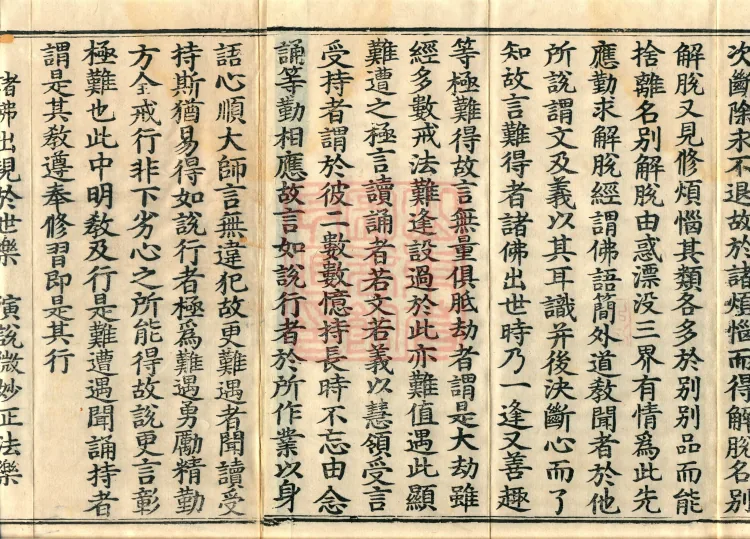 次斷除求不退故於諸煩惱而得解脫名別
解脫又見修煩惱其類各多於別別品而能
捨離名別解脫由惑漂没三界有情為此先
應勤求解脫經謂佛語簡外道教聞者於他
所說謂文及義以其耳識并後決斷心而了
知故言難得者諸佛出世時乃一逢又善趣
等極難得故言無量俱胝劫者謂是大劫雖
經多數戒法難逢設過於此亦難值遇此顯
難遭之極言讀誦者若文若義以慧領受言
受持者謂於彼二數數憶持長時不忘由念
誦等勤相應故言如說行者於所作業以身
語心順大師言無違犯故更難遇者聞讀受
持斯猶易得如說行者極為難遇勇勵精勤
方全戒行非下劣心之所能得故說更言彰
極難也此中明教及行是難遭遇聞誦持者
謂是其教遵奉修習即是其行
諸佛出現於世樂 演說微妙正法樂